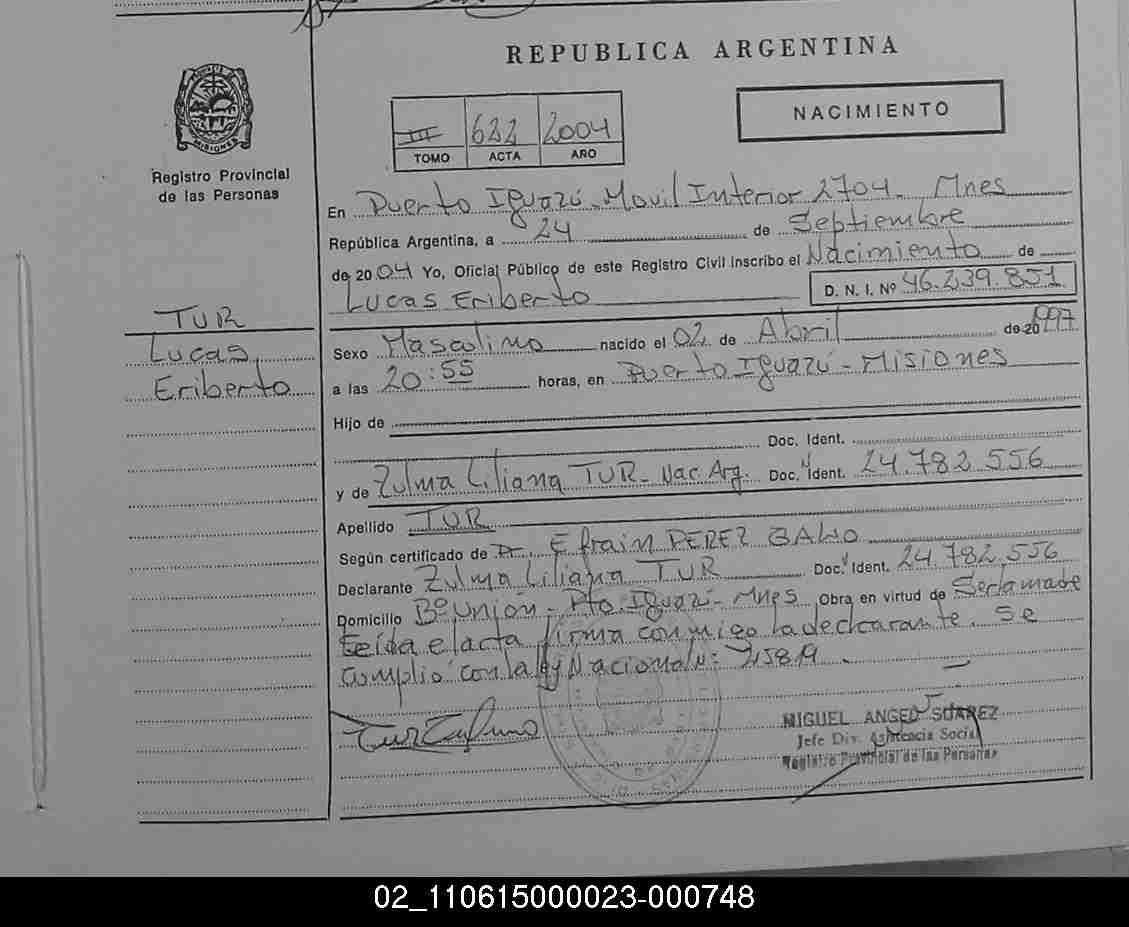 REPUBLICA ARGENTINA
MISIONES
Registro Provincial
de las Personas
III 622 2004
TOMO ACTA AÑO
NACIMIENTO
En Puerto Iguazú - Movil Interior 2704 - Mnes
República Argentina, a 24 de Septiembre
de 2004 Yo, Oficial Público de este Registro Civil Inscribo el Nacimiento de
Lucas Eriberto D. N. I. Nº 46.239.851
TUR
Lucas
Eriberto
Sexo Masculino nacido el 02 de Abril de 20 1997
a las 20:55 horas, en Puerto Iguazú - Misiones
Hijo de
Doc. Ident.
y de Zulma Liliana TUR - Nac Arg. Doc. Ident. 24.782.556
Apellido TUR
Según certificado de Dr. Efrain PEREZ
Declarante Zulma Liliana TUR Doc. Ident. 24.782.556
Domicilio Bº Unión - Pto. Iguazú - Mnes Obra en virtud de Ser la madre
Leída el acta firma conmigo la declarante. Se
cumplió con la ley Nacional Nº: 25819
MIGUEL ANGEL SUAREZ
Jefe Div. Asistencia Social
Registro Provincial de las Personas
02_110615000023-000748